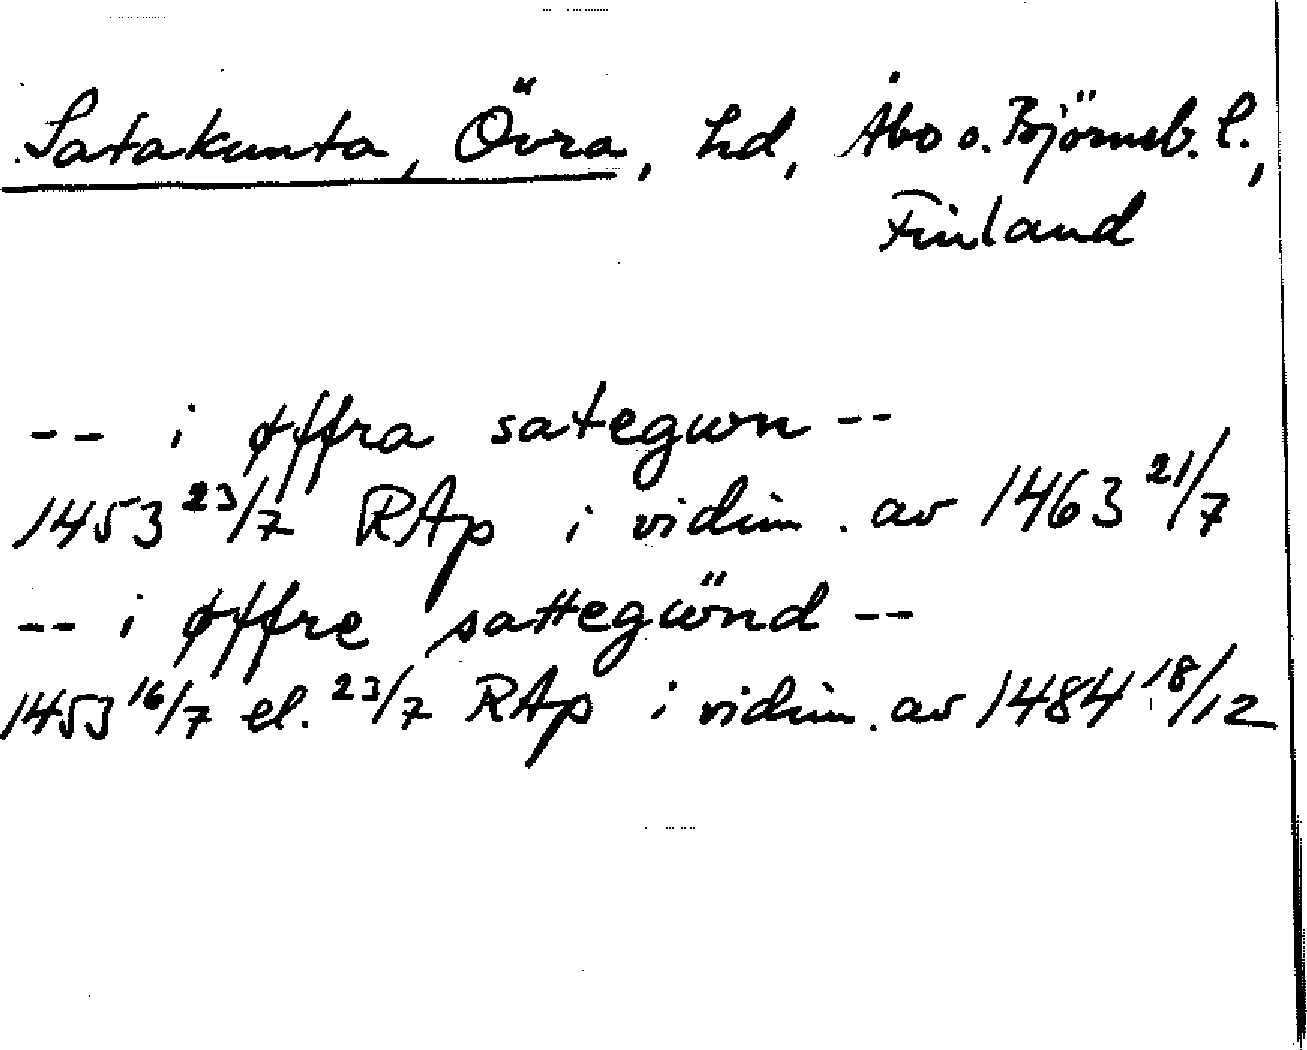 Satakunta, Övra, hd, Åbo o. Björneb. l.,
Finland
-- i øffra sategwn --
1453 23/7 RAp i vidim. av 1463 21/7
-- i øffre sattegẅnd --
1453 16/7 el. 23/7 RAp i vidim. av 1484 18/12